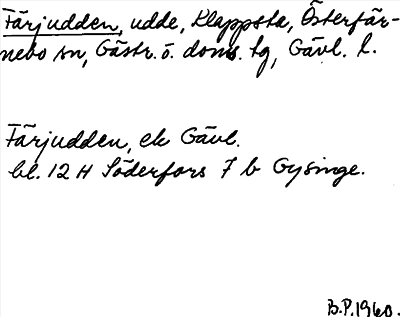 Färjudden, udde, Klappsta, Österfär-
nebo sn, Gästr. ö. doms. tg, Gävl. l.
Färjudden, ek Gävl.
bl. 12 H Söderfors 7 b Gysinge.
B.P. 1960.